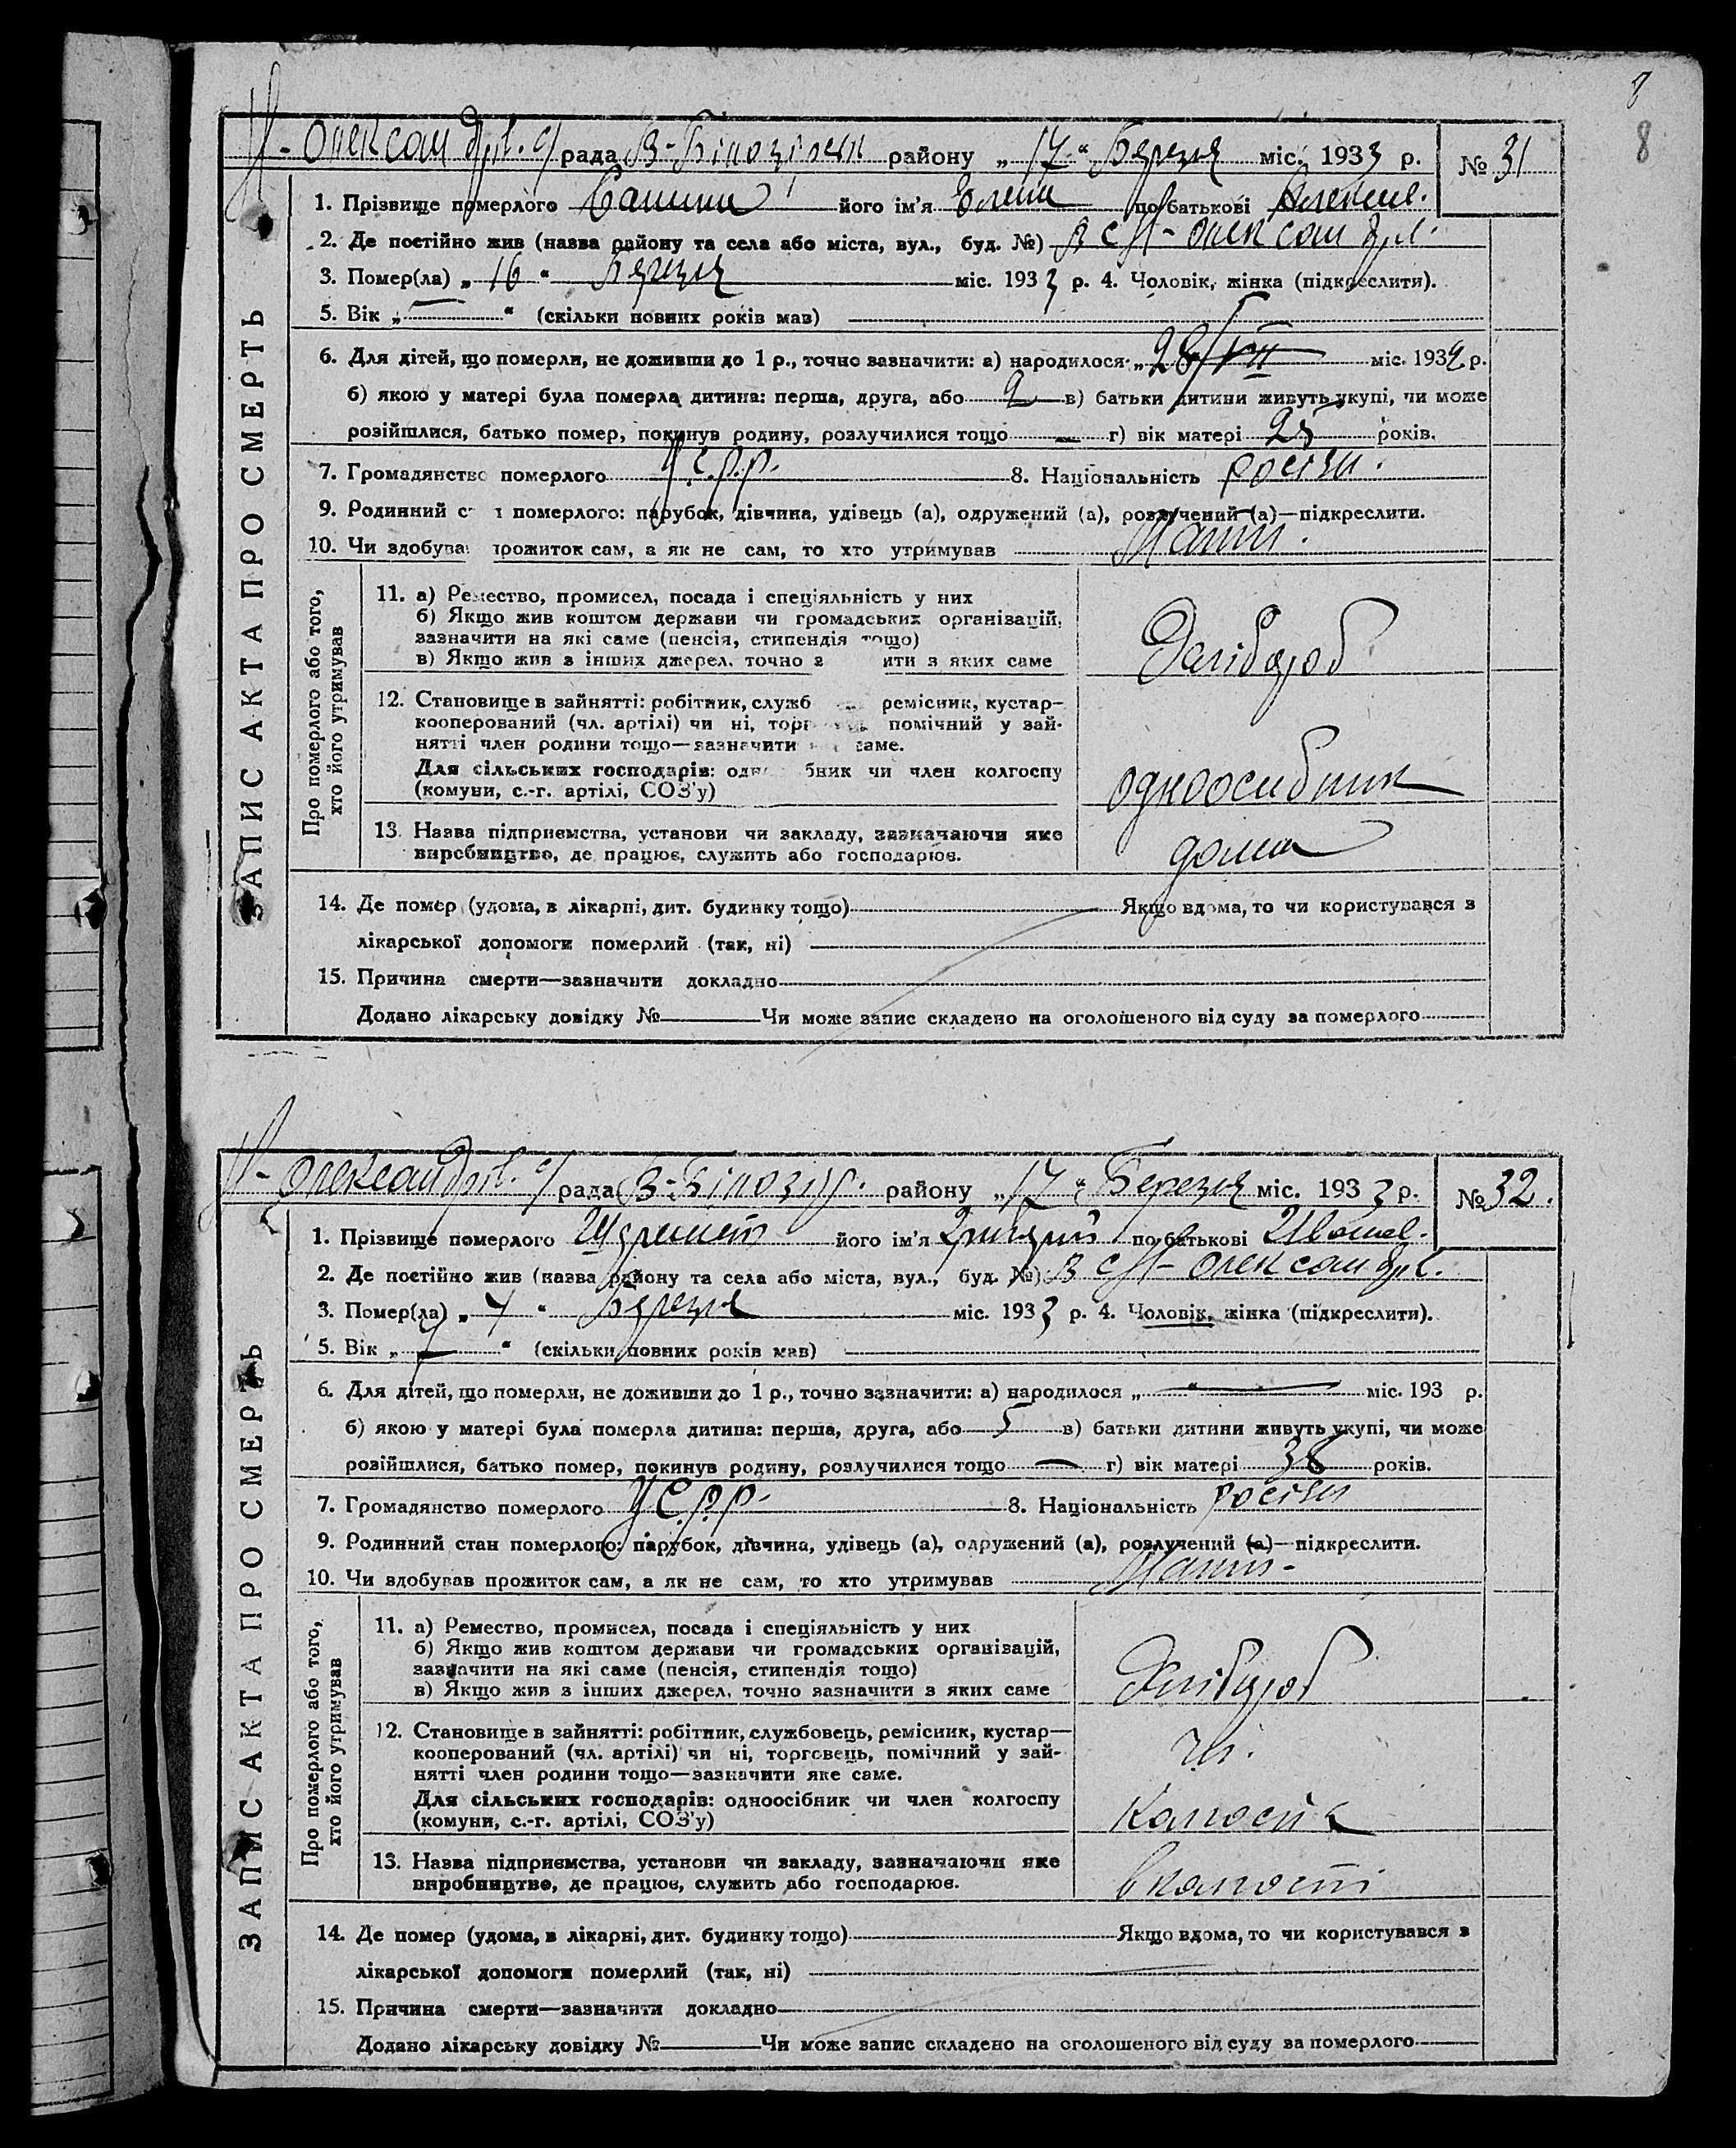 8
8
Н-Олександрів. с/рада В-Білозірськ району „17“ Березня міс. 1933 р. № 31
1. Прізвище померлого його ім'я Олена по батькові Алексіев.
2. Де постійно жив (назва району та села або міста, вул., буд. №) в с Н-Олександрів.
3. Помер(ла) „16“ Березня міс. 1933 р. 4. Чоловік, жінка (підкреслити).
5. Вік „—“ (скільки повних років мав)
6. Для дітей, що померли, не доживши до 1 р., точно зазначити: а) народилося „28/VIII міс. 1932 р.
б) якою у матері була померла дитина: перша, друга, або 2 в) батьки дитини живуть укупі, чи може
розійшлися, батько помер, покинув родину, розлучилися тощо — г) вік матері 25 років.
7. Громадянство померлого У.С.р.р. 8. Національність росіян.
9. Родинний с н померлого: парубок, дівчина, удівець (а), одружений (а), розлучений (а)—підкреслити.
10. Чи здобував прожиток сам, а як не сам, то хто утримував
ЗАПИС АКТА ПРО СМЕРТЬ
Про померлого або того, хто його утримував
11. а) Ремество, промисел, посада і спеціяльність у них
б) Якщо жив коштом держави чи громадських організацій,
зазначити на які саме (пенсія, стипендія тощо)
в) Якщо жив з інших джерел, точно з ити з яких саме
Хлібороб
12. Становище в зайнятті: робітник, служб ремісник, кустар—
кооперований (чл. артілі) чи ні, торг помічний у зай-
нятті член родини тощо—зазначити саме.
Для сільських господарів: одно бник чи член колгоспу
(комуни, с.-г. артілі, СОЗ'у)
одноосибник
13. Назва підприємства, установи чи закладу, зазначаючи яке
виробництво, де працює, служить або господарює.
дома
14. Де помер (удома, в лікарні, дит. будинку тощо) Якщо вдома, то чи користувався з
лікарської допомоги померлий (так, ні)
15. Причина смерти—зазначити докладно
Додано лікарську довідку № Чи може запис складено на оголошеного від суду за померлого
Н-Олександрів. с/рада В-Білозір. району „17“ Березня міс. 1933 р. № 32.
1. Прізвище померлого його ім'я Григорій по батькові Иванов.
2. Де постійно жив (назва району та села або міста, вул., буд. №) в с Н-Олександрів.
3. Помер(ла) „4“ Березня міс. 1933 р. 4. Чоловік, жінка (підкреслити).
5. Вік „7“ (скільки повних років мав)
6. Для дітей, що померли, не доживши до 1 р., точно зазначити: а) народилося „ “ — міс. 193 р.
б) якою у матері була померла дитина: перша, друга, або 5 в) батьки дитини живуть укупі, чи може
розійшлися, батько помер, покинув родину, розлучилися тощо — г) вік матері 38 років.
7. Громадянство померлого УС.р.р. 8. Національність росіян
9. Родинний стан померлого: парубок, дівчина, удівець (а), одружений (а), розлучений (а)—підкреслити.
10. Чи здобував прожиток сам, а як не сам, то хто утримував
ЗАПИС АКТА ПРО СМЕРТЬ
Про померлого або того, хто його утримував
11. а) Ремество, промисел, посада і спеціяльність у них
б) Якщо жив коштом держави чи громадських організацій,
зазначити на які саме (пенсія, стипендія тощо)
в) Якщо жив з інших джерел, точно зазначити з яких саме
Хлібороб
12. Становище в зайнятті: робітник, службовець, ремісник, кустар—
кооперований (чл. артілі) чи ні, торговець, помічний у зай-
нятті член родини тощо—зазначити яке саме.
Для сільських господарів: одноосібник чи член колгоспу
(комуни, с.-г. артілі, СОЗ'у)
чл.
Колгосп
13. Назва підприємства, установи чи закладу, зазначаючи яке
виробництво, де працює, служить або господарює.
в колгоспі
14. Де помер (удома, в лікарні, дит. будинку тощо) Якщо вдома, то чи користувався з
лікарської допомоги померлий (так, ні)
15. Причина смерти—зазначити докладно
Додано лікарську довідку № Чи може запис складено на оголошеного від суду за померлого